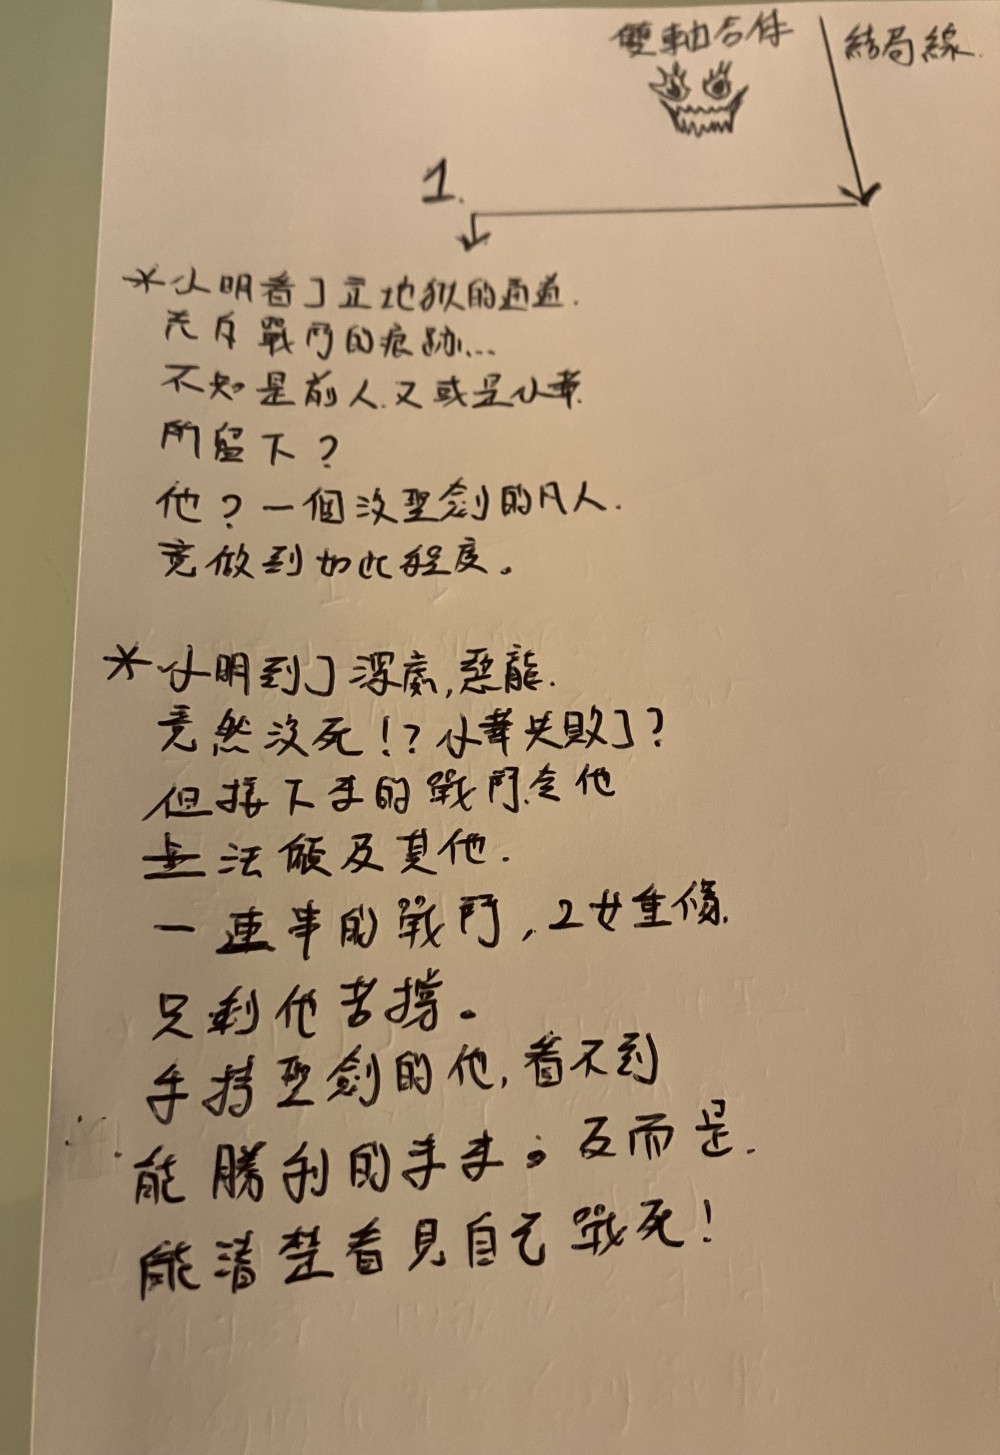 雙軸合併
結局線.
1.
*小明看了立地獄的通道.
充斥戰鬥的痕跡...
不知是前人.又或是小華.
所留下?
他?一個沒聖劍的凡人.
竟做到如此程度。
*小明到了深處,惡龍.
竟然沒死!?小華失敗了?
但接下來的戰鬥.令他
無法顧及其他.
一連串的戰鬥,2女重傷.
只剩他苦撐。
手持聖劍的他,看不到
能勝利的未來。反而是.
能清楚看見自己戰死!